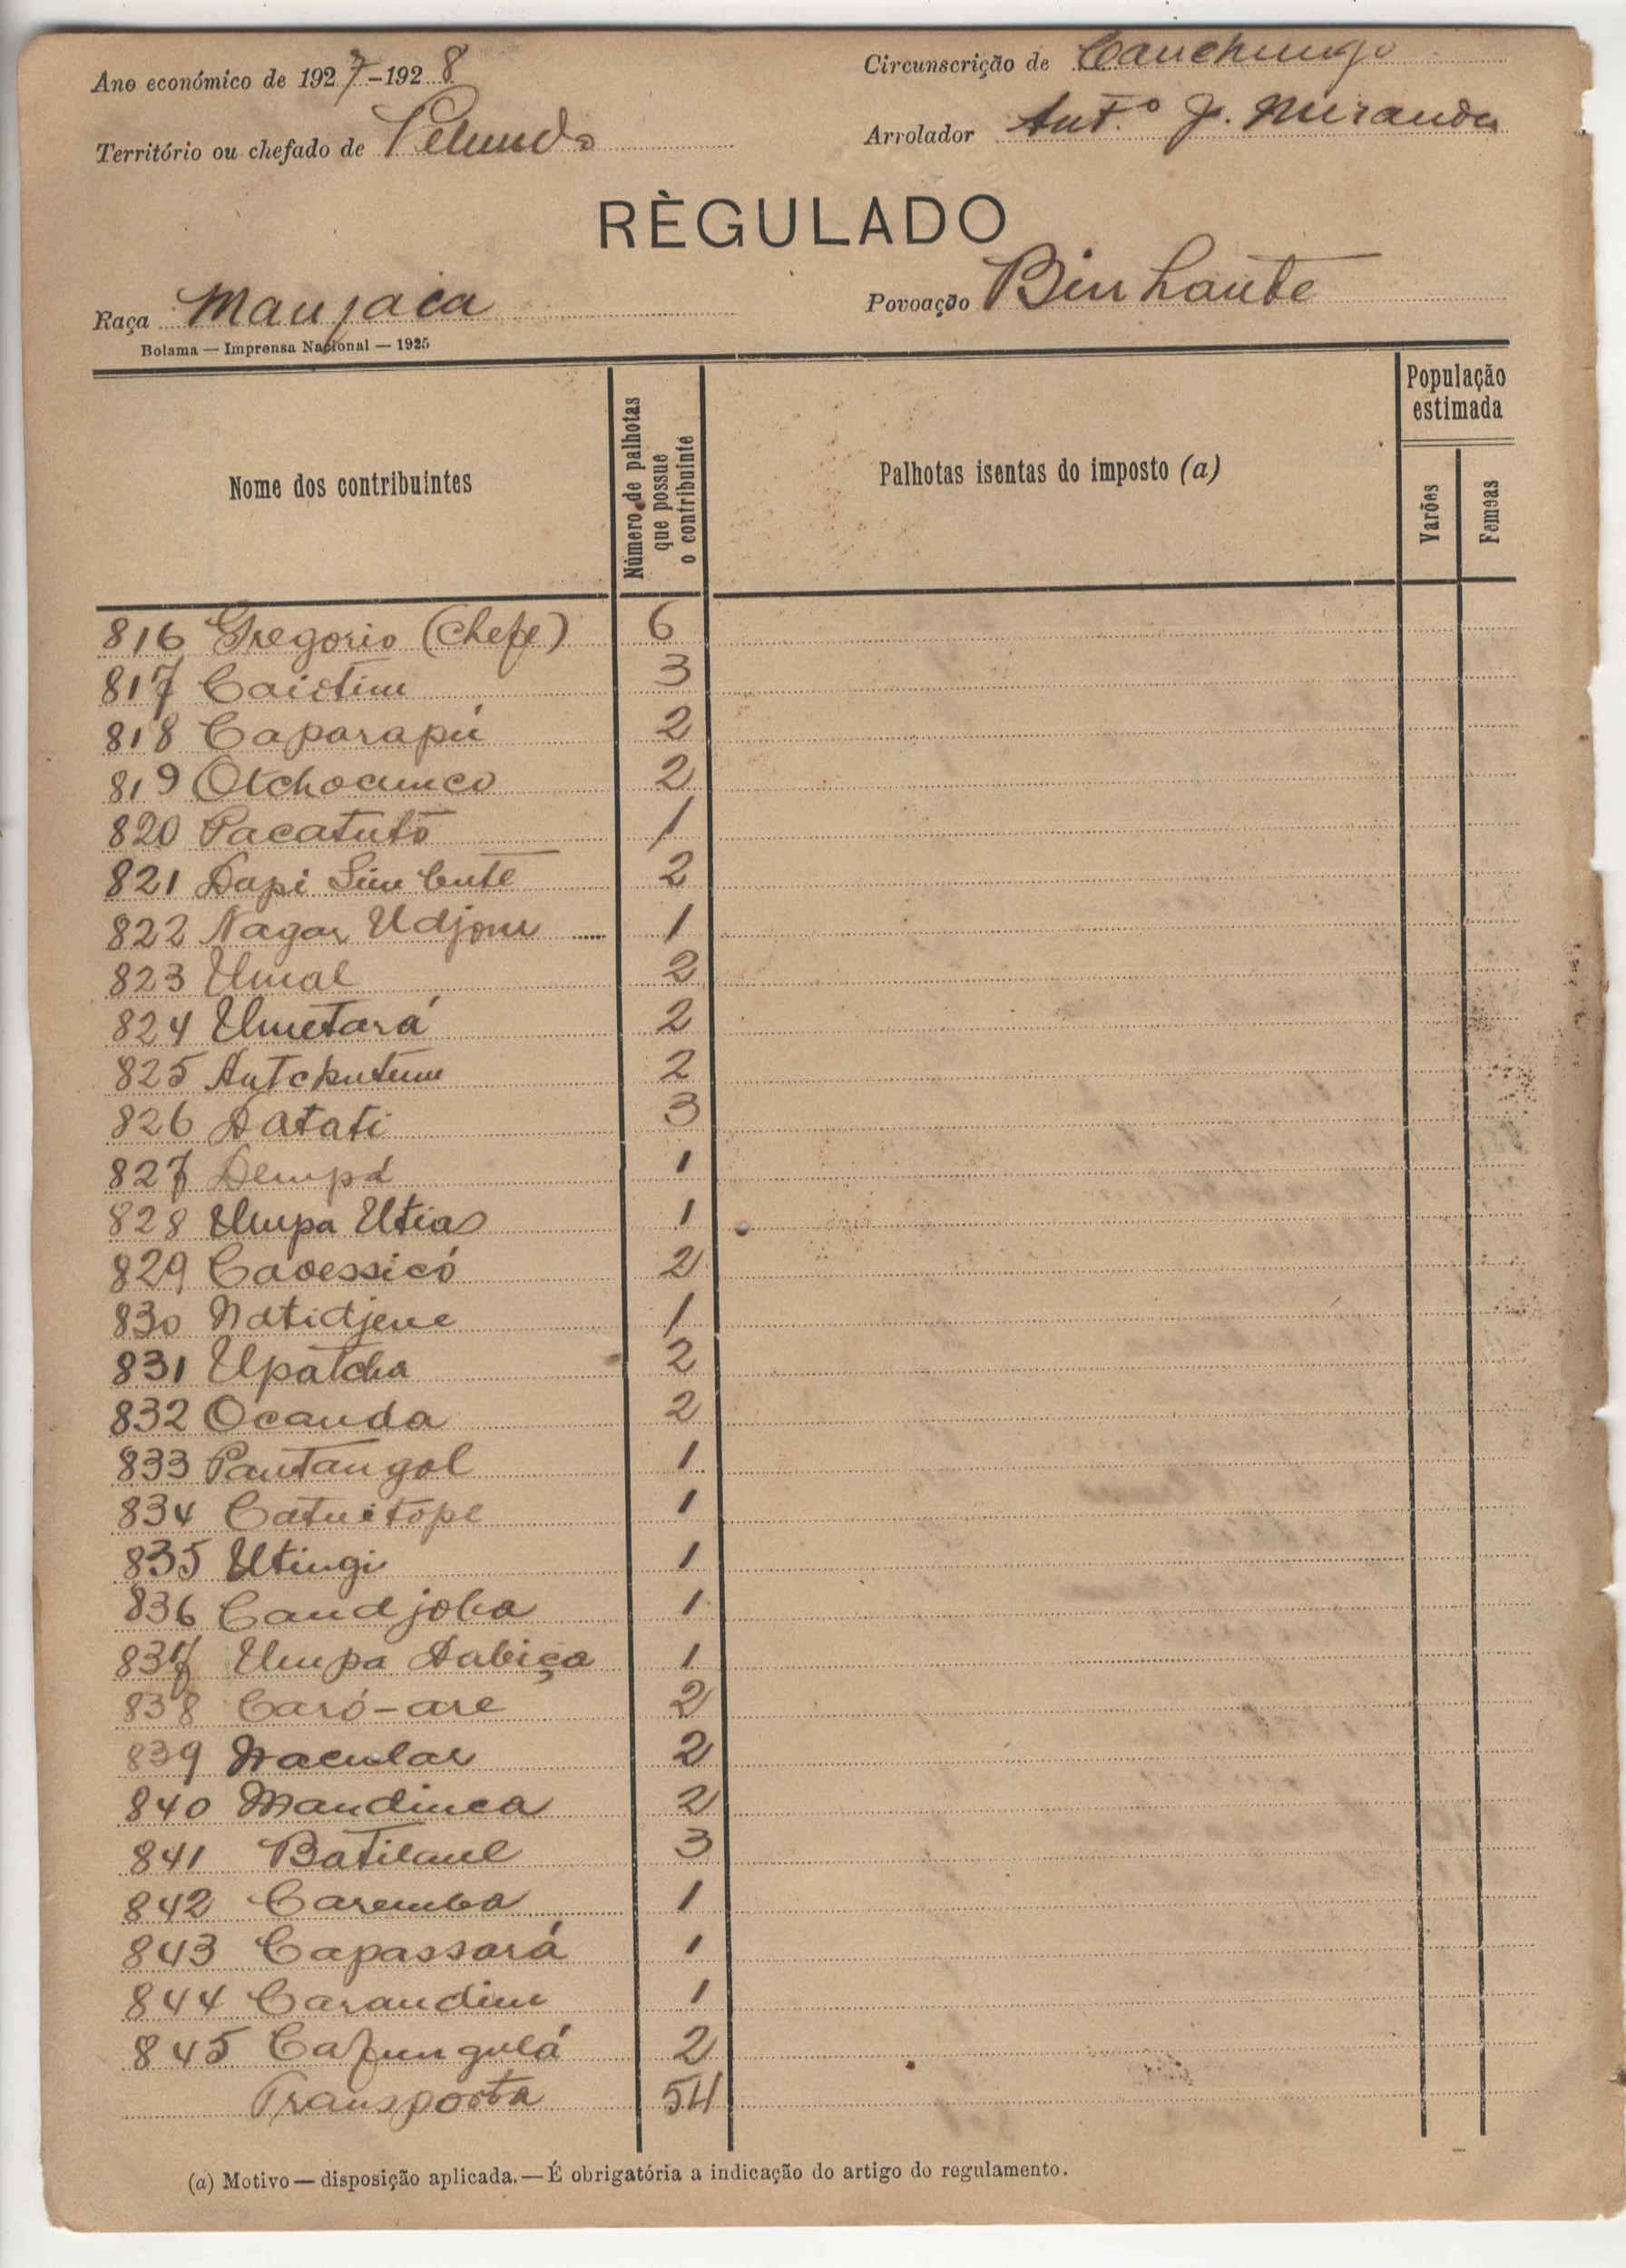 Ano económico de 1927-1928
Circunscrição de Canchungo
Território ou chefado de Pelundo
Arrolador Ant.º J. Miranda
RÈGULADO
Raça Manjaca
Povoação Binhante
Bolama — Imprensa Nacional — 1925
Nome dos contribuintes
Número de palhotas que possue o contribuinte
Palhotas isentas do imposto (a)
População estimada
Varões
Femeas
816 Gregorio (Chefe) 6
817 Caiotim 3
818 Caparapú 2
819 Otchocunco 2
820 Pacatutó 1
821 Dapi 2
822 Nagar Udjom 1
823 Umal 2
824 Umetará 2
825 2
826 Datati 3
827 Dempá 1
828 Umpa Utias 1
829 Cavessicó 2
830 Natidjene 1
831 Upatcha 2
832 Ocanda 2
833 Pantangol 1
834 Catuitope 1
835 Utingi 1
836 Candjoba 1
837 Umpa Dabiça 1
838 Caró-are 2
839 Nacular 2
840 Mandinca 2
841 Batilane 3
842 Caremba 1
843 Capassará 1
844 Carandim 1
845 Cafungulá 2
Transporta 54
(a) Motivo — disposição aplicada. — É obrigatória a indicação do artigo do regulamento.